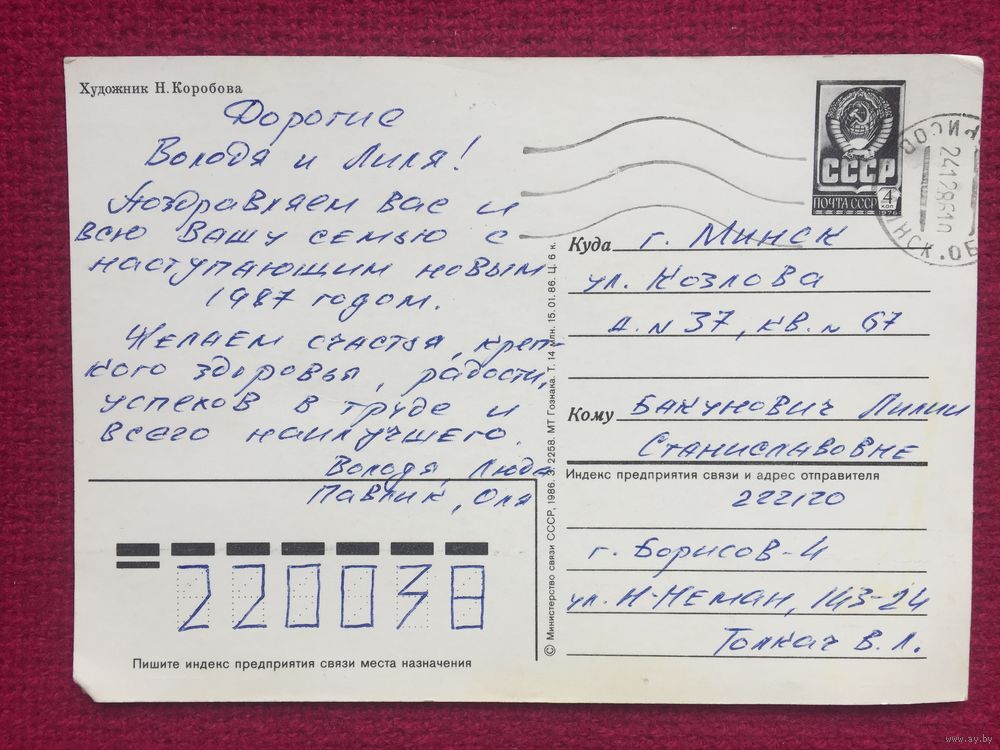 Художник Н. Коробова
Дорогие
Володя и Лиля!
Поздравляем вас и
всю Вашу семью с
наступающим новым
1987 годом.
Желаем счастья, креп-
кого здоровья, радости,
успехов в труде и
всего наилучшего.
Володя, Люда
Павлик, Оля
220038
Пишите индекс предприятия связи места назначения
© Министерство связи СССР, 1986. З. 2258. МТ Гознака. Т. 14 млн. 15.01.86. Ц. 6 к.
СССР
ПОЧТА СССР 4 коп
1976
24128610
Куда г. Минск
ул. Козлова
д. N 37, кв. N 67
Кому Бакунович Лилии
Станиславовне
Индекс предприятия связи и адрес отправителя
222120
г. Борисов-4
ул. Н-Неман, 143-24
Толкач В. Л.
www.ay.by